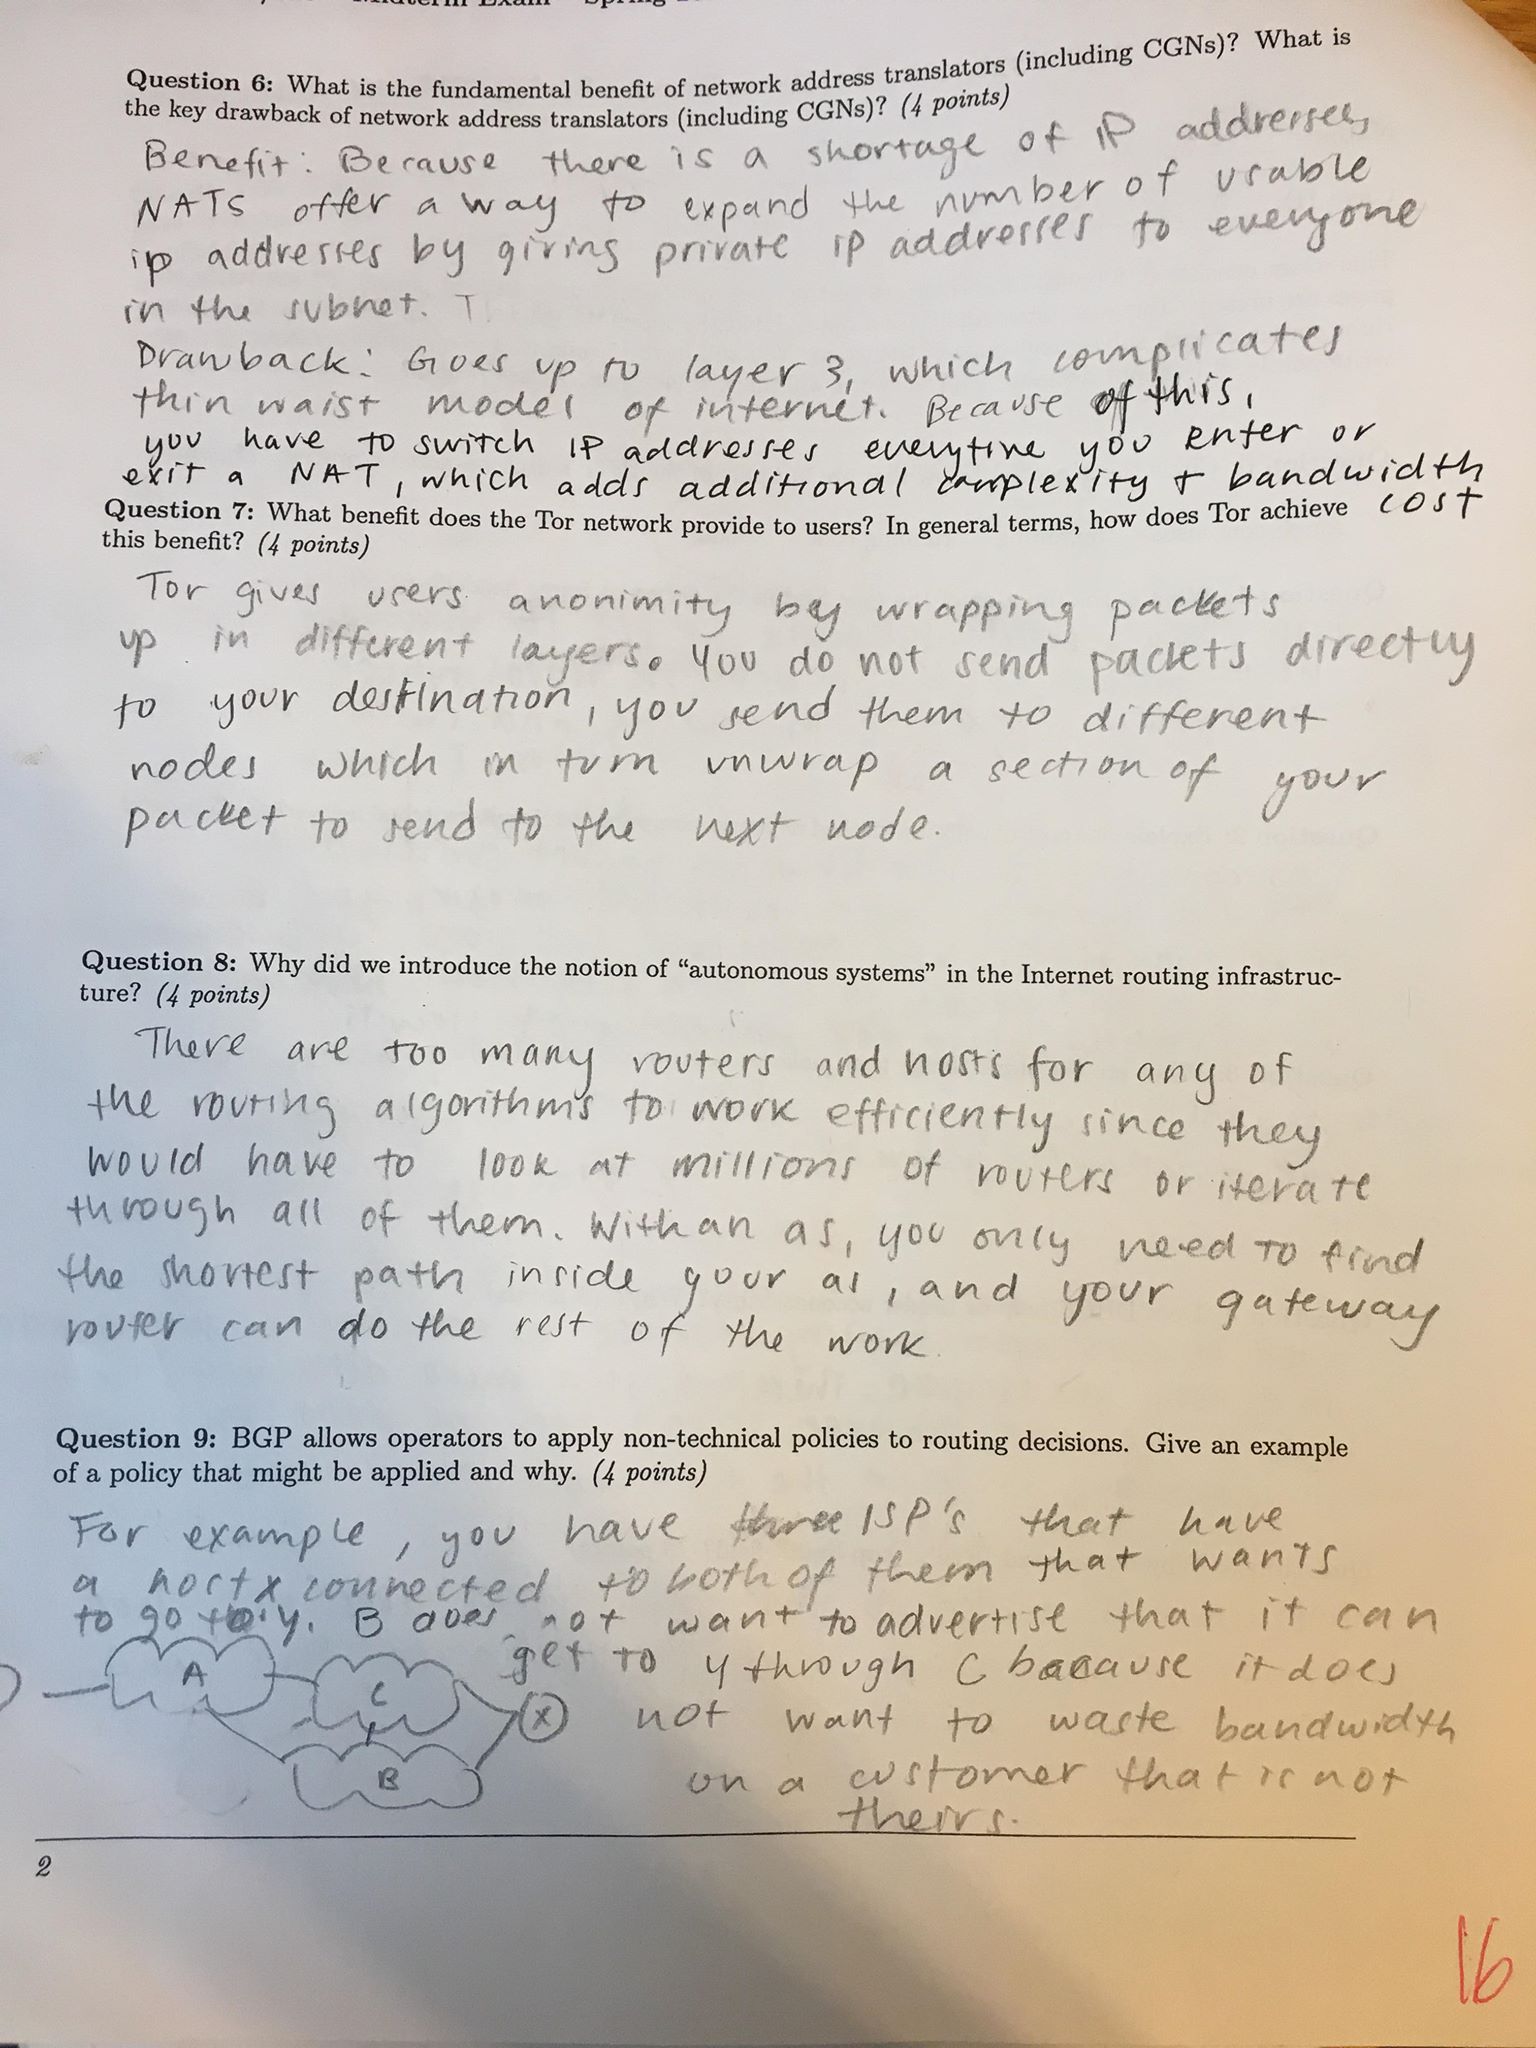 Midterm Exam Spring
Question 6: What is the fundamental benefit of network address translators (including CGNs)? What is
the key drawback of network address translators (including CGNs)? (4 points)
Benefit: Because there is a shortage of IP addresses,
NATS offer a way to expand the number of usable
ip addresses by giving private ip addresses to everyone
in the subnet. T
Drawback: Goes up to layer 3, which complicates
thin waist model of internet. Because of this,
you have to switch IP addresses everytime you enter or
exit a NAT, which adds additional complexity + bandwidth
cost
Question 7: What benefit does the Tor network provide to users? In general terms, how does Tor achieve
this benefit? (4 points)
Tor gives users anonimity by wrapping packets
up in different layers. You do not send packets directly
to your destination, you send them to different
nodes which in turn unwrap a section of your
packet to send to the next node.
Question 8: Why did we introduce the notion of “autonomous systems” in the Internet routing infrastruc-
ture? (4 points)
There are too many routers and hosts for any of
the routing algorithms to work efficiently since they
would have to look at millions of routers or iterate
through all of them. With an as, you only need to find
the shortest path inside your as, and your gateway
router can do the rest of the work.
Question 9: BGP allows operators to apply non-technical policies to routing decisions. Give an example
of a policy that might be applied and why. (4 points)
For example, you have three ISP's that have
a host x connected to both of them that wants
to go to y. B does not want to advertise that it can
get to y through C because it does
not want to waste bandwidth
on a customer that is not
theirs.
A
C
X
B
2
16